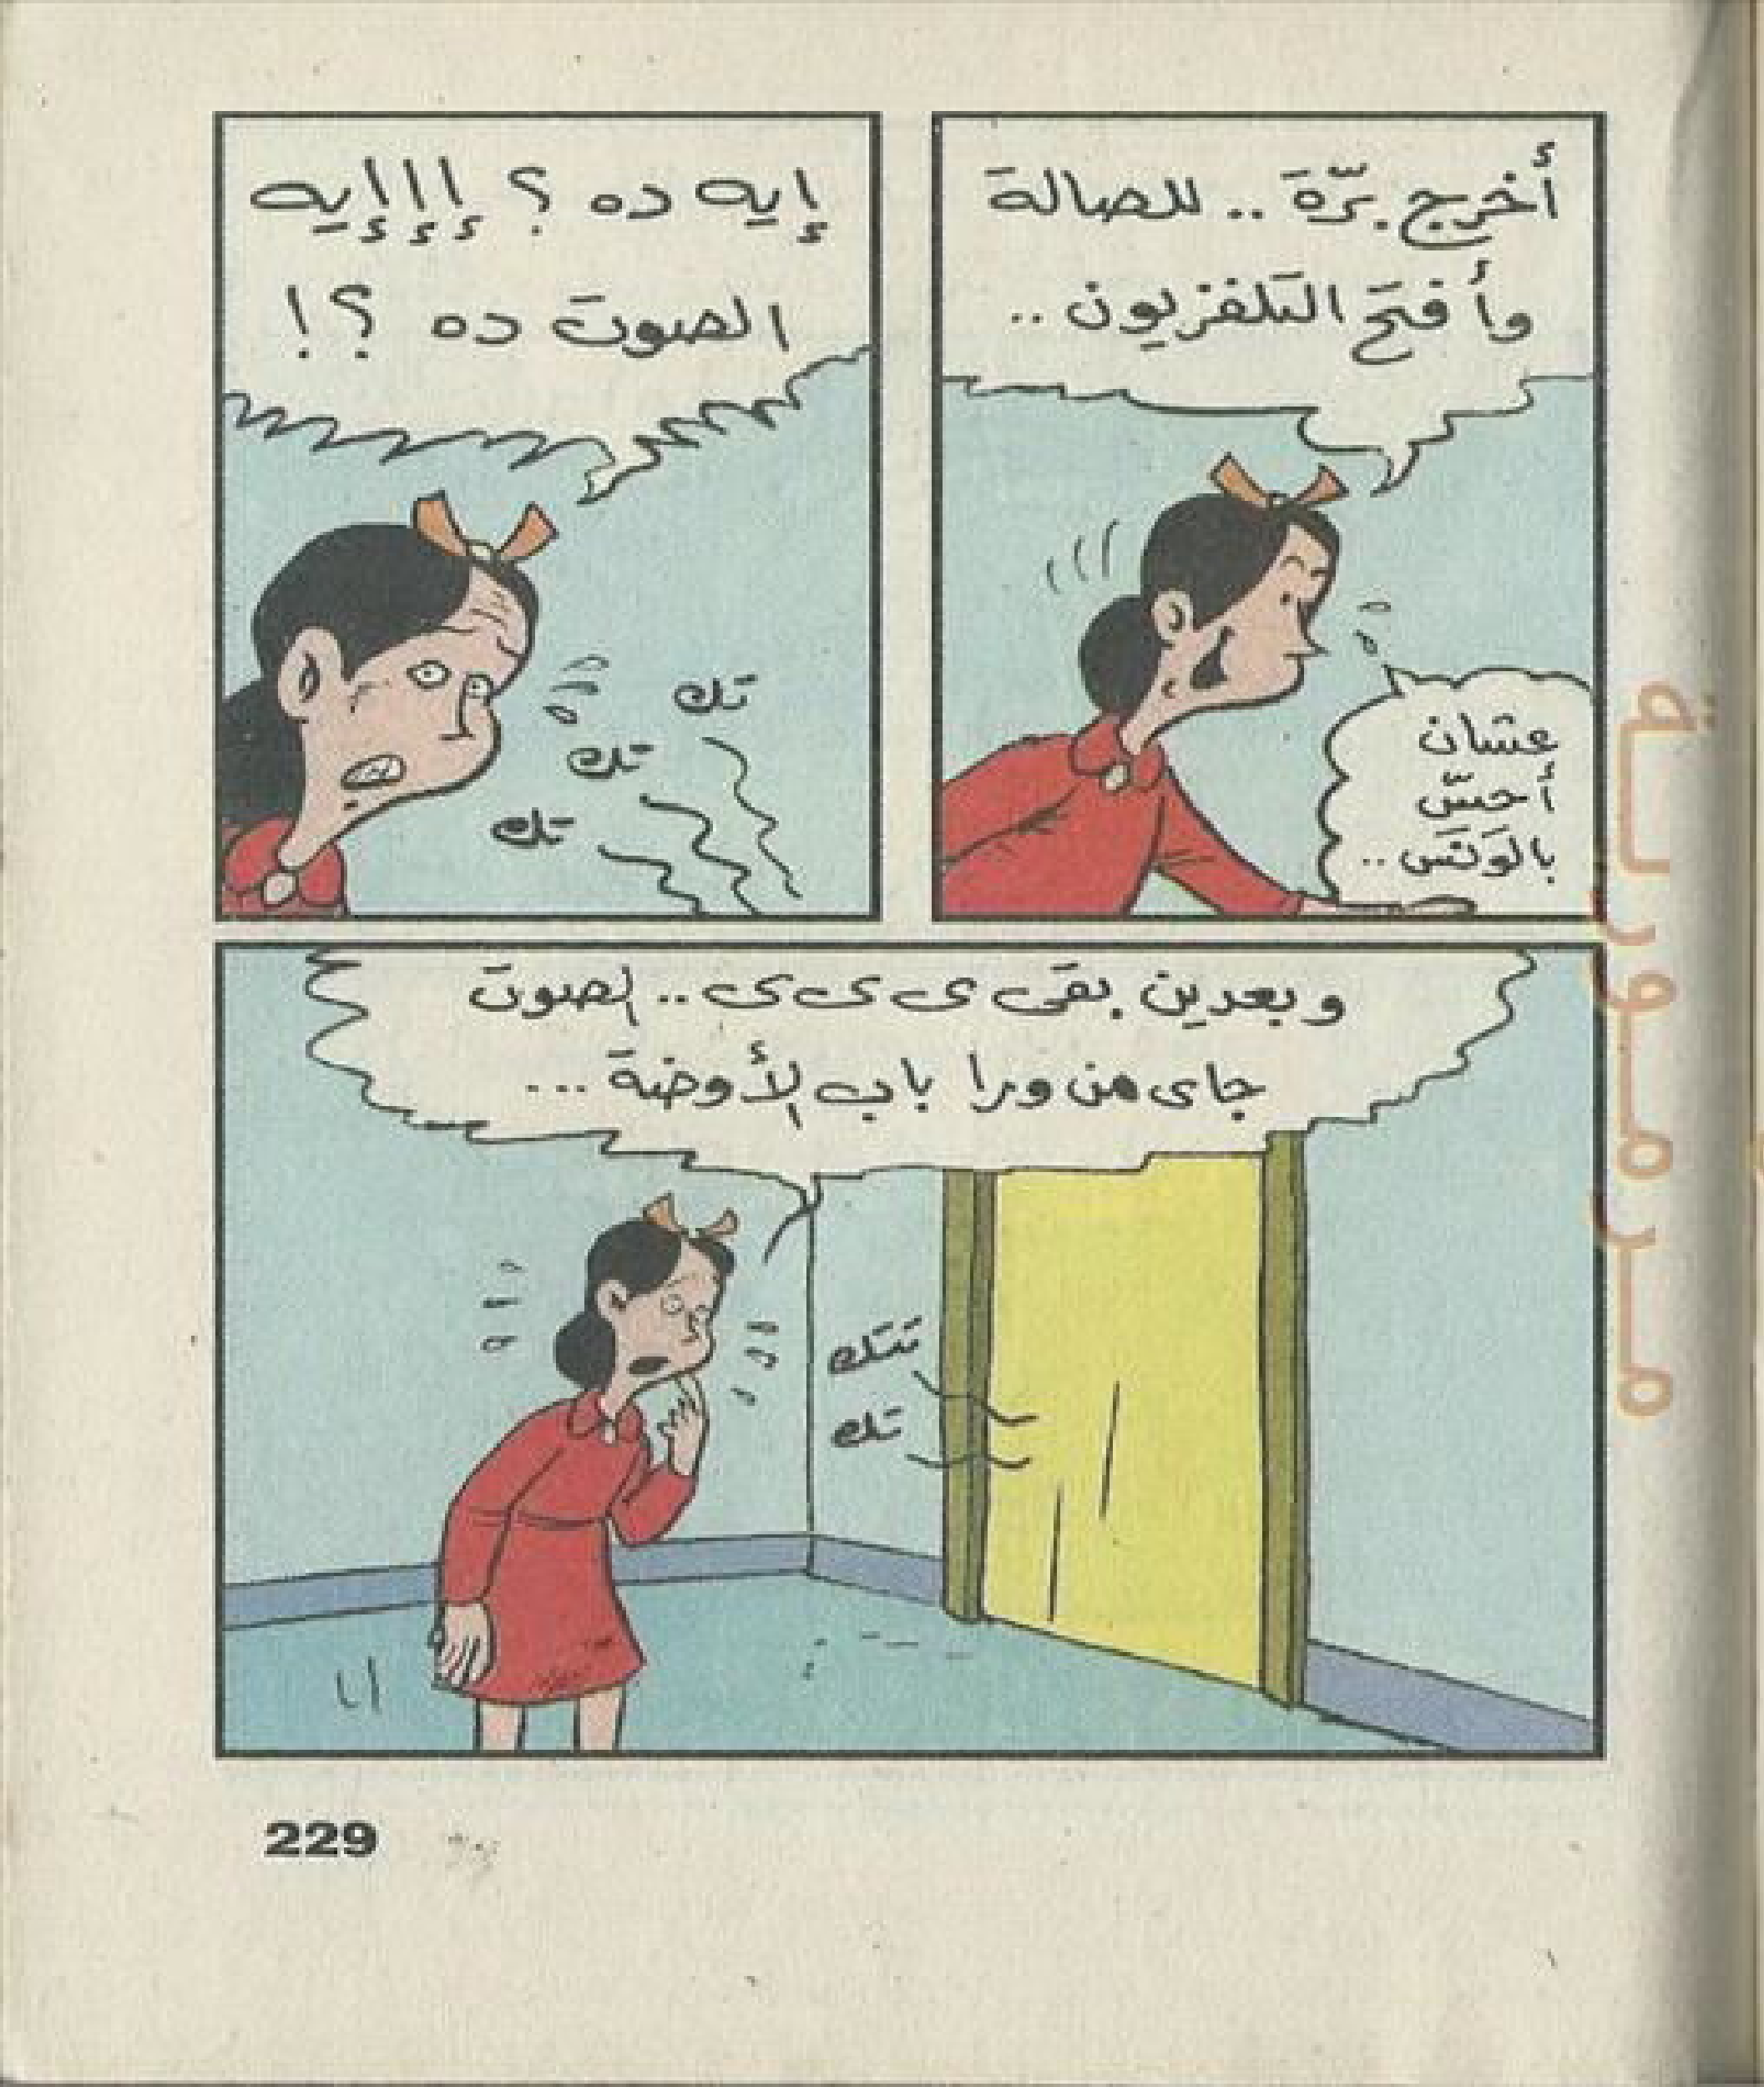 أخرج برّة .. للصالة
وأفتح التلفزيون ..
عشان
أحسّ
بالوَنَس ..
إيه ده ؟ إإإإيه
الصوت ده ؟!
تك
تك
تك
وبعدين بقى ى ى ى .. الصوت
جاى من ورا باب الأوضة ...
تتتك
تك
229
مرمورية